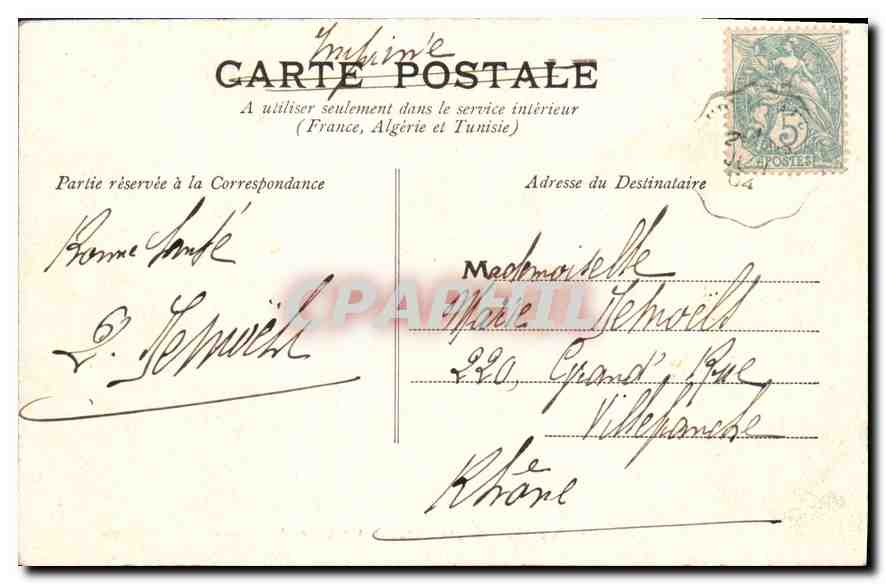 Imprimé
CARTE POSTALE
A utiliser seulement dans le service intérieur
(France, Algérie et Tunisie)
Partie réservée à la Correspondance
Adresse du Destinataire
5c
POSTES
04
Bonne Santé
Mademoiselle
Marie
220, Grand' Rue
Villefranche
Rhône
CPARAMA